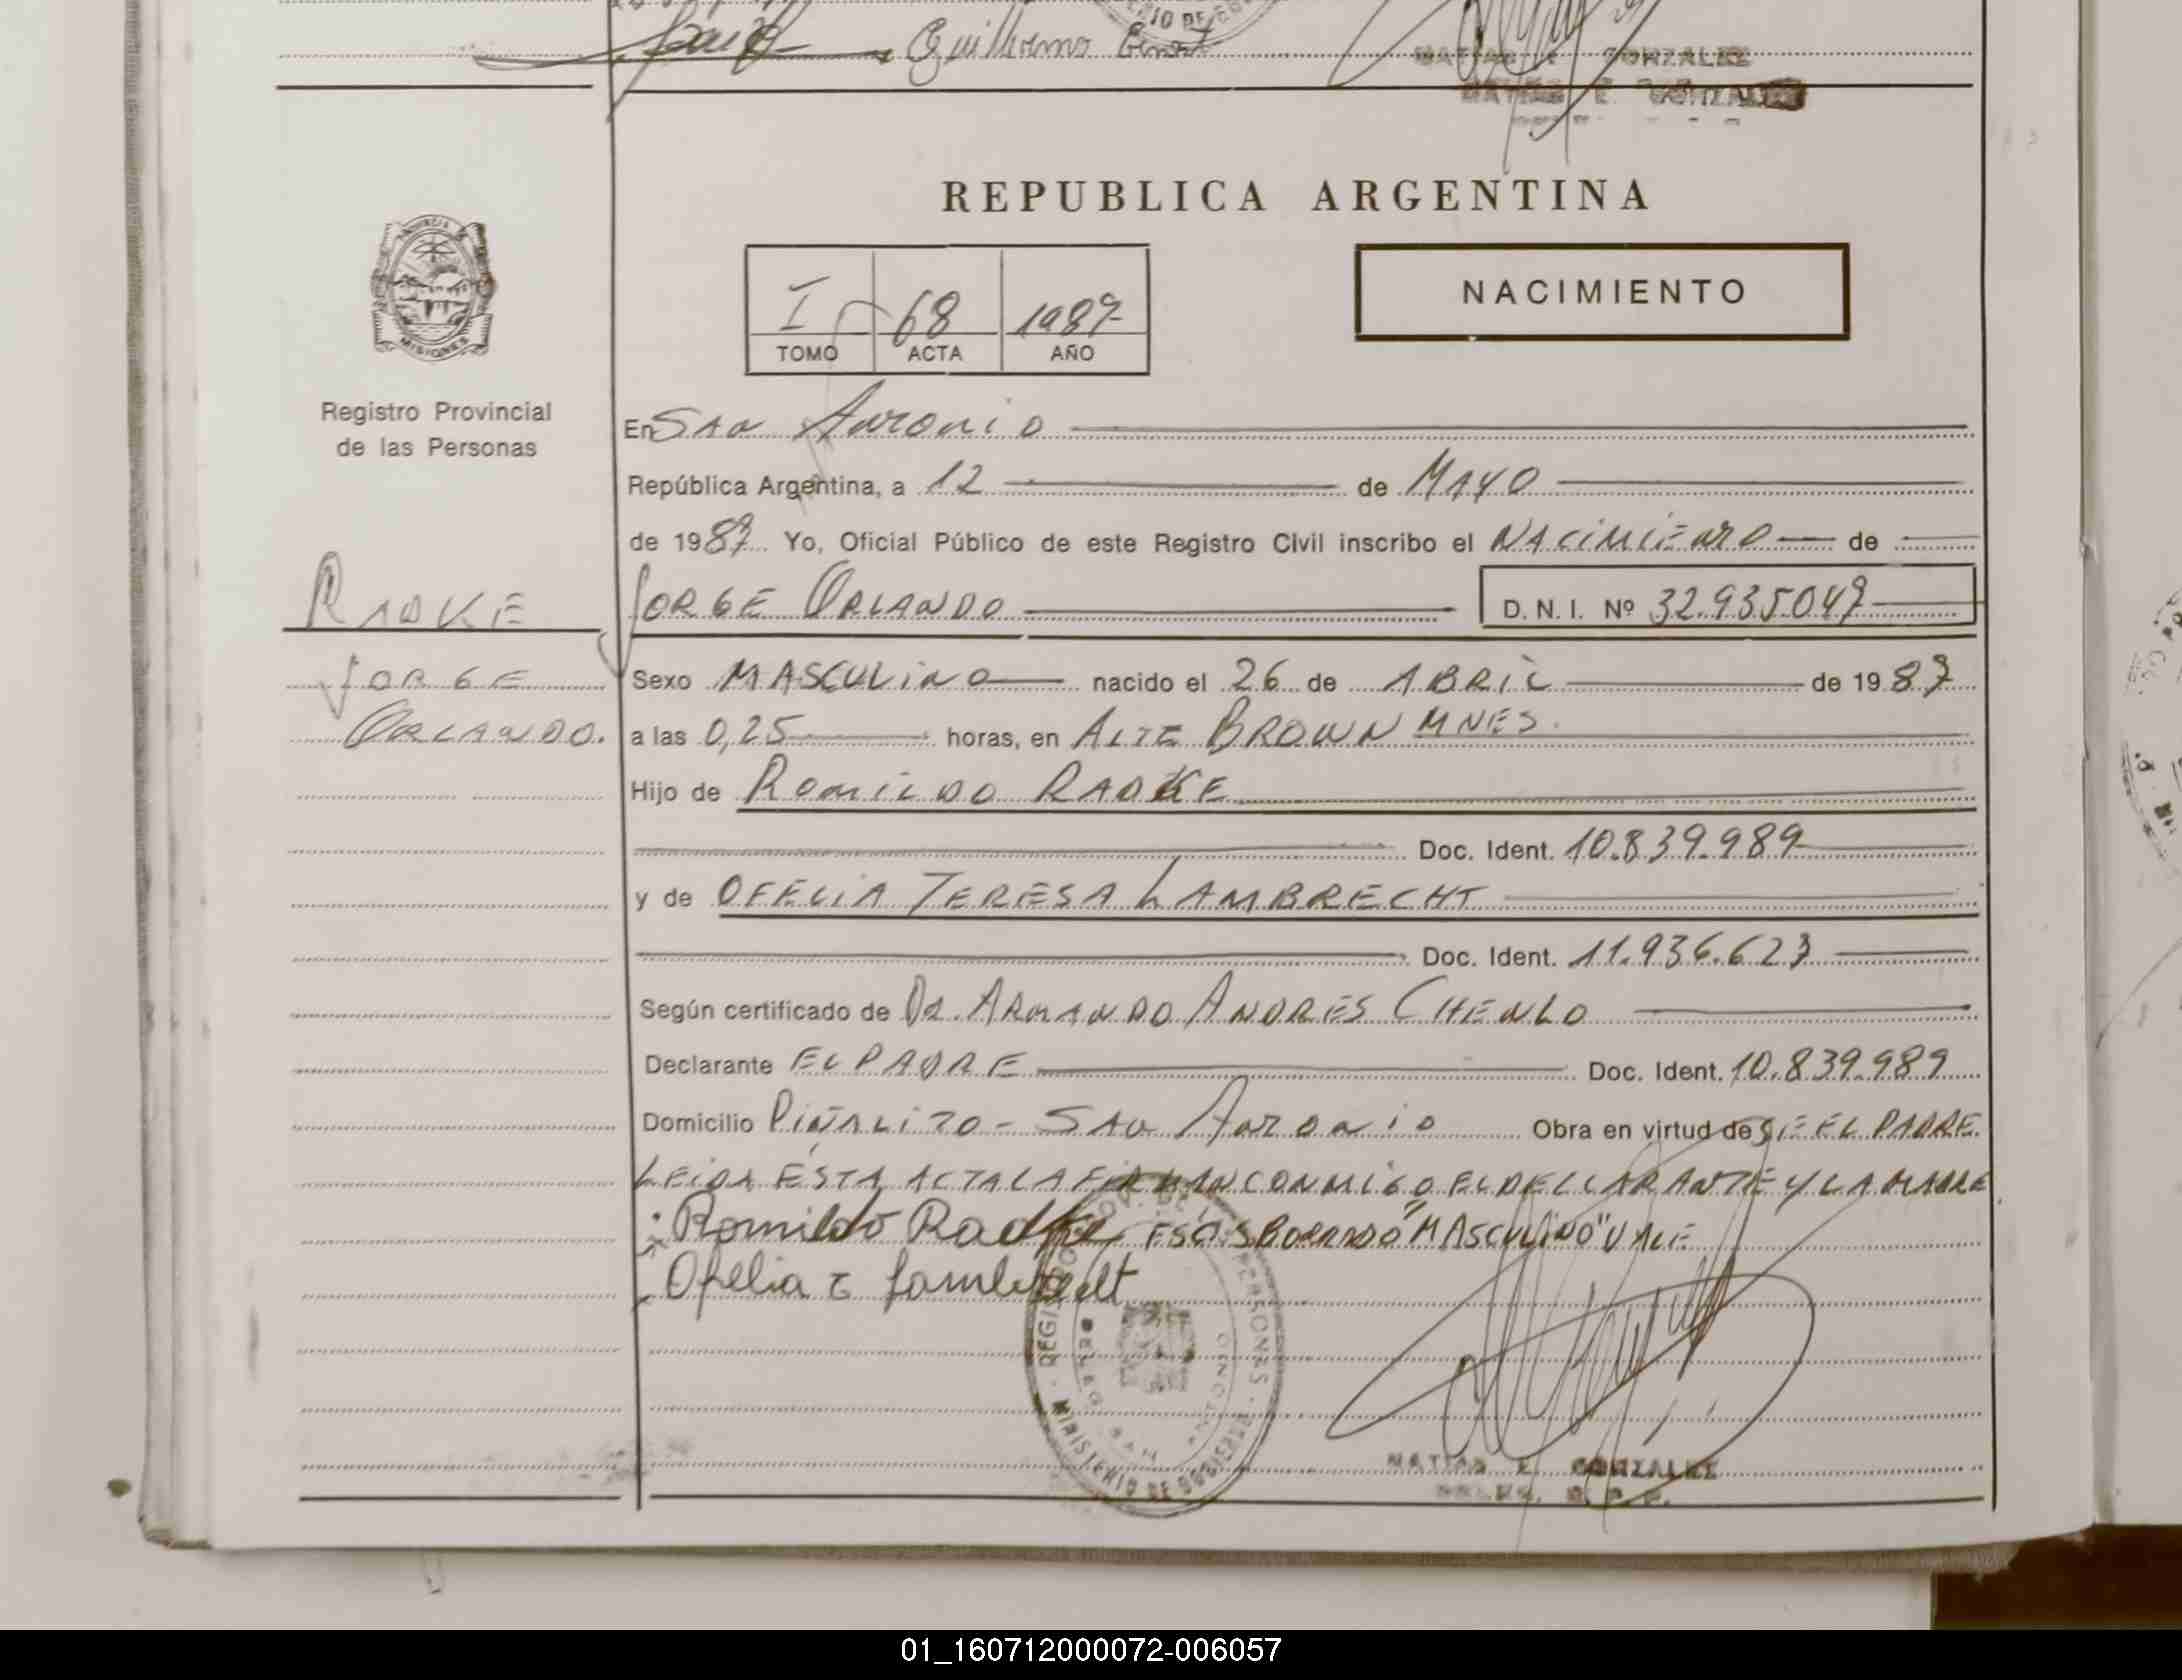 Guillermo
MATIAS E. GONZALEZ
MATIAS E. GONZALEZ
REPUBLICA ARGENTINA
MISIONES
I 68 1987
TOMO ACTA AÑO
NACIMIENTO
Registro Provincial
de las Personas
En SAN ANTONIO
República Argentina, a 12 de MAYO
de 1987 Yo, Oficial Público de este Registro Civil inscribo el NACIMIENTO de
RADKE
JORGE ORLANDO D.N.I. Nº 32.935.047
JORGE
ORLANDO.
Sexo MASCULINO nacido el 26 de ABRIL de 1987
a las 0,25 horas, en ALTE BROWN MNES.
Hijo de ROMILDO RADKE
Doc. Ident. 10.839.989
y de OFELIA TERESA LAMBRECHT
Doc. Ident. 11.936.623
Según certificado de DR. ARMANDO ANDRES CHENLO
Declarante EL PADRE Doc. Ident. 10.839.989
Domicilio PIÑALITO - SAN ANTONIO Obra en virtud de SE EL PADRE.
LEIDA ESTA ACTA LA FIRMAN CONMIGO EL DECLARANTE Y LA MADRE
Romildo Radke ESC. S BORRADO "MASCULINO" VALE
Ofelia T Lambrecht
MINISTERIO DE GOBIERNO
MATIAS E. GONZALEZ
01_160712000072-006057